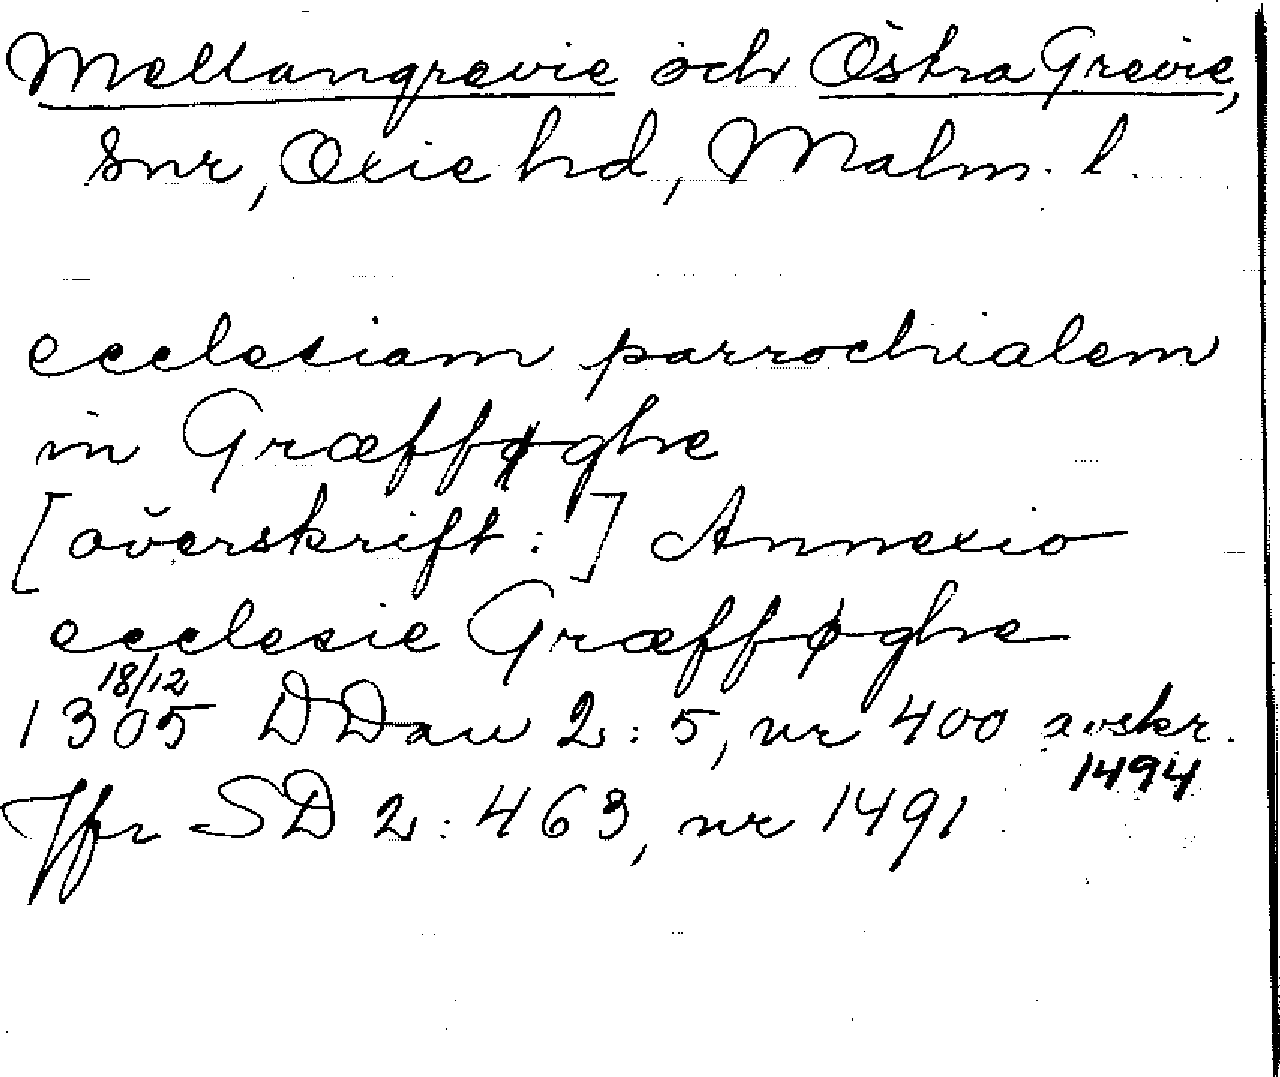 Mellangrevie och Östra Grevie,
snr, Oxie hd, Malm. l.
ecclesiam parrochialem
in Græfføghe
[överskrift:] Annexio
ecclesie Græfføghe
1305 18/12 DDan 2:5, nr 400 avskr. 1494
Jfr SD 2:463, nr 1491